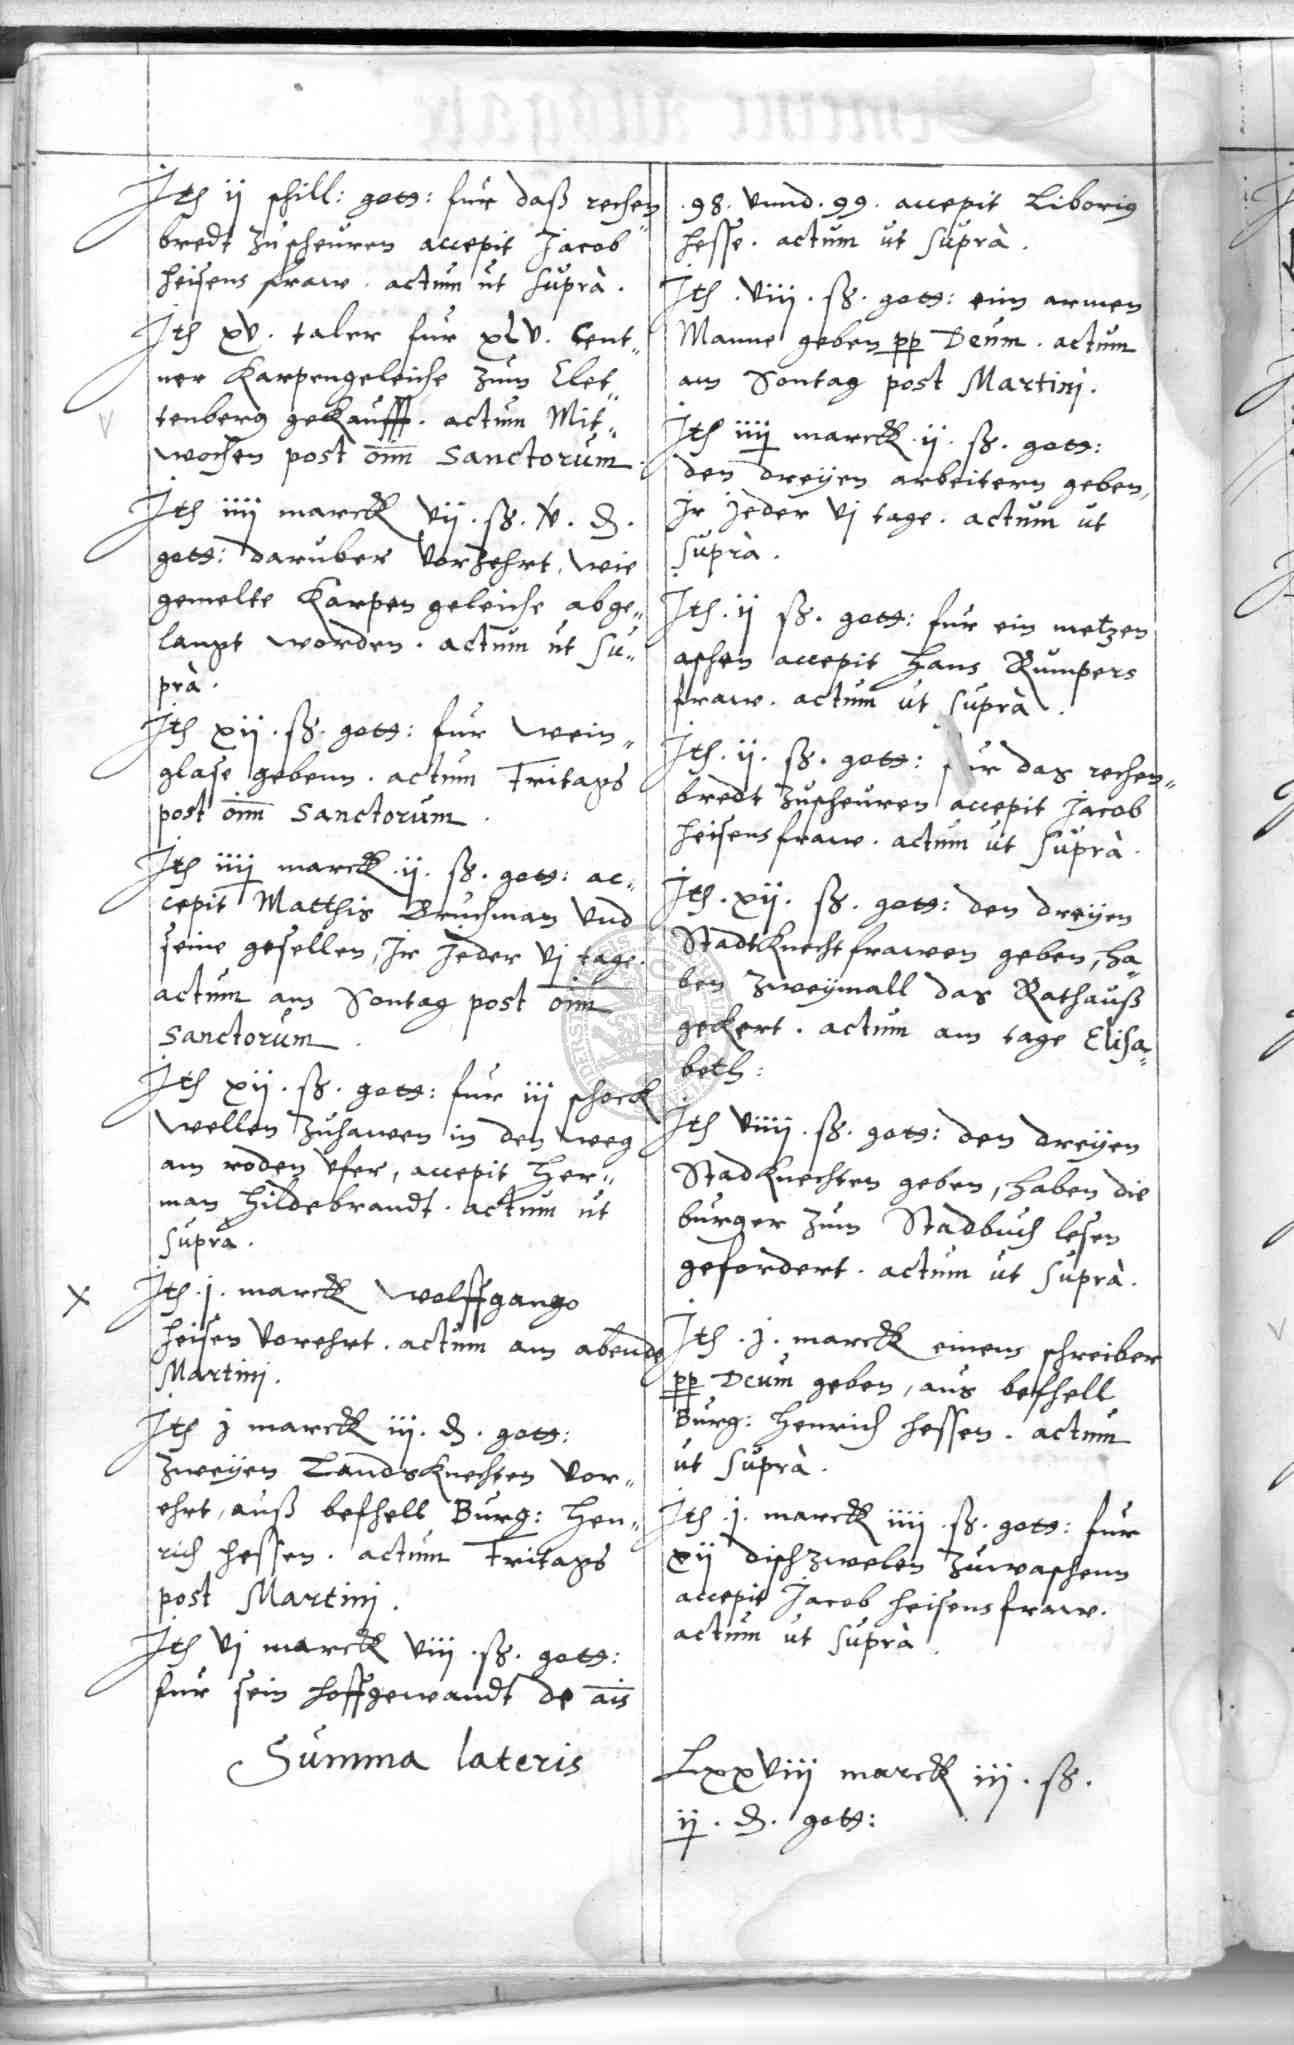 Jth ij schill: gotts: fur daß rechen„
bredt zuscheuren accepit Jacob
heisens fraw. actum ut suprà.
Jth xv. taler fur xlv. Cent„
ner Karpengeleiche zum Elet„
tenberg gekaufff. actum Mit„
wochen post om̄ Sanctorum.
Jth iiij marck vij. ß. v. ₰.
gotts: daruber vorzehrt, wie
gemelte Karpen geleiche abge„
langt worden. actum ut su„
prà.
Jth xij. ß. gotts: fur wein„
glase gebenn. actum Fritags
post om̄ Sanctorum.
Jth iiij marck ij. ß. gotts: ac„
cepit Matthis Bruchman vnd
seine gesellen, Jr Jeder vj tage.
actum am Sontag post om̄
Sanctorum.
Jth xij. ß. gotts: fur iij schock
wellen zuhawen in den weg
am roden vfer, accepit Her„
man Hildebrandt. actum ut
suprà.
Jth. j. marck Wolffgango
heisen vorehrt. actum am abende
Martinj.
Jth j marck iij. ₰. gotts:
zweyen Landsknechten vor„
ehrt, auß befhell Burg: Hen„
rich hessen. actum Fritags
post Martinj.
Jth vj marck viij. ß. gotts:
fur sein hoffgewandt de ais
.98. vnnd .99. accepit Liborig
hesse. actum ut suprà.
Jth. viij. ß. gotts: eim armen
Manne geben pp Deum. actum
am Sontag post Martinj.
Jth iiij marck ij. ß. gotts:
den dreyen arbeitern geben,
Jr Jeder vj tage. actum ut
suprà.
Jth. ij ß. gotts: fur ein metzen
aschen accepit Hans Rumpers
fraw. actum ut suprà.
Jth. ij. ß. gotts: fur das rechen„
bredt zuscheuren accepit Jacob
heisens fraw. actum ut suprà.
Jth. xij. ß. gotts: den dreyen
Stadtknecht frawen geben, ha„
ben zweymall das Rathauß
gekert. actum am tage Elisa„
beth:
Jth viiij. ß. gotts: den dreyen
Stadknechten geben, haben die
burger zum Stadbuch lesen
gefordert. actum ut suprà.
Jth. j. marck einem schreiber
pp Deum geben, aus befhell
Burg: Henrich hessen. actum
ut suprà.
Jth. j. marck iiij. ß. gotts: fur
xij dischzwelen zuwaschenn
accepit Jacob heisens fraw.
actum ut suprà.
Summa lateris
Lxxviij marck iij. ß.
ij. ₰. gotts: